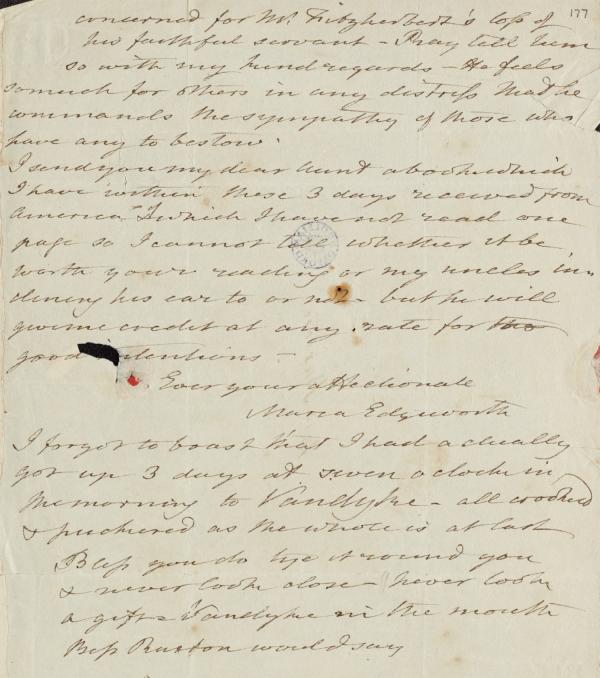 177
concerned for Mr. Fitzherbert's loss of
his faithful servant - Pray tell him
so with my kind regards - He feels
so much for others in any distress that he
commands the sympathy of those who
have any to bestow.
I send you my dear Aunt a book which
I have within these 3 days received from
America & which I have not read one
page so I cannot tell whether it be
worth your reading or my uncles in-
clining his ear to or not - but he will
give me credit at any rate for the
good intentions -
Ever your affectionate
Maria Edgeworth
I forgot to boast that I had actually
got up 3 days at seven o clock in
the morning to Vandyke - all crooked
& puckered as the whole is at last
Bless you do tye it round you
& never look close - Never look
a gift Vandyke in the mouth
Bess Ruxton would say